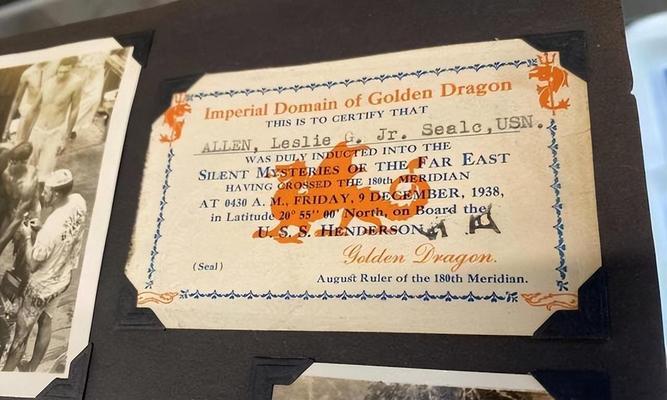 Imperial Domain of Golden Dragon
THIS IS TO CERTIFY THAT
ALLEN, Leslie G. Jr. Sea1c, USN.
WAS DULY INDUCTED INTO THE
SILENT MYSTERIES OF THE FAR EAST
HAVING CROSSED THE 180th MERIDIAN
AT 0430 A. M., FRIDAY, 9 DECEMBER, 1938,
in Latitude 20° 55" 00' North, on Board the
U. S. S. HENDERSON
Golden Dragon.
(Seal)
August Ruler of the 180th Meridian.